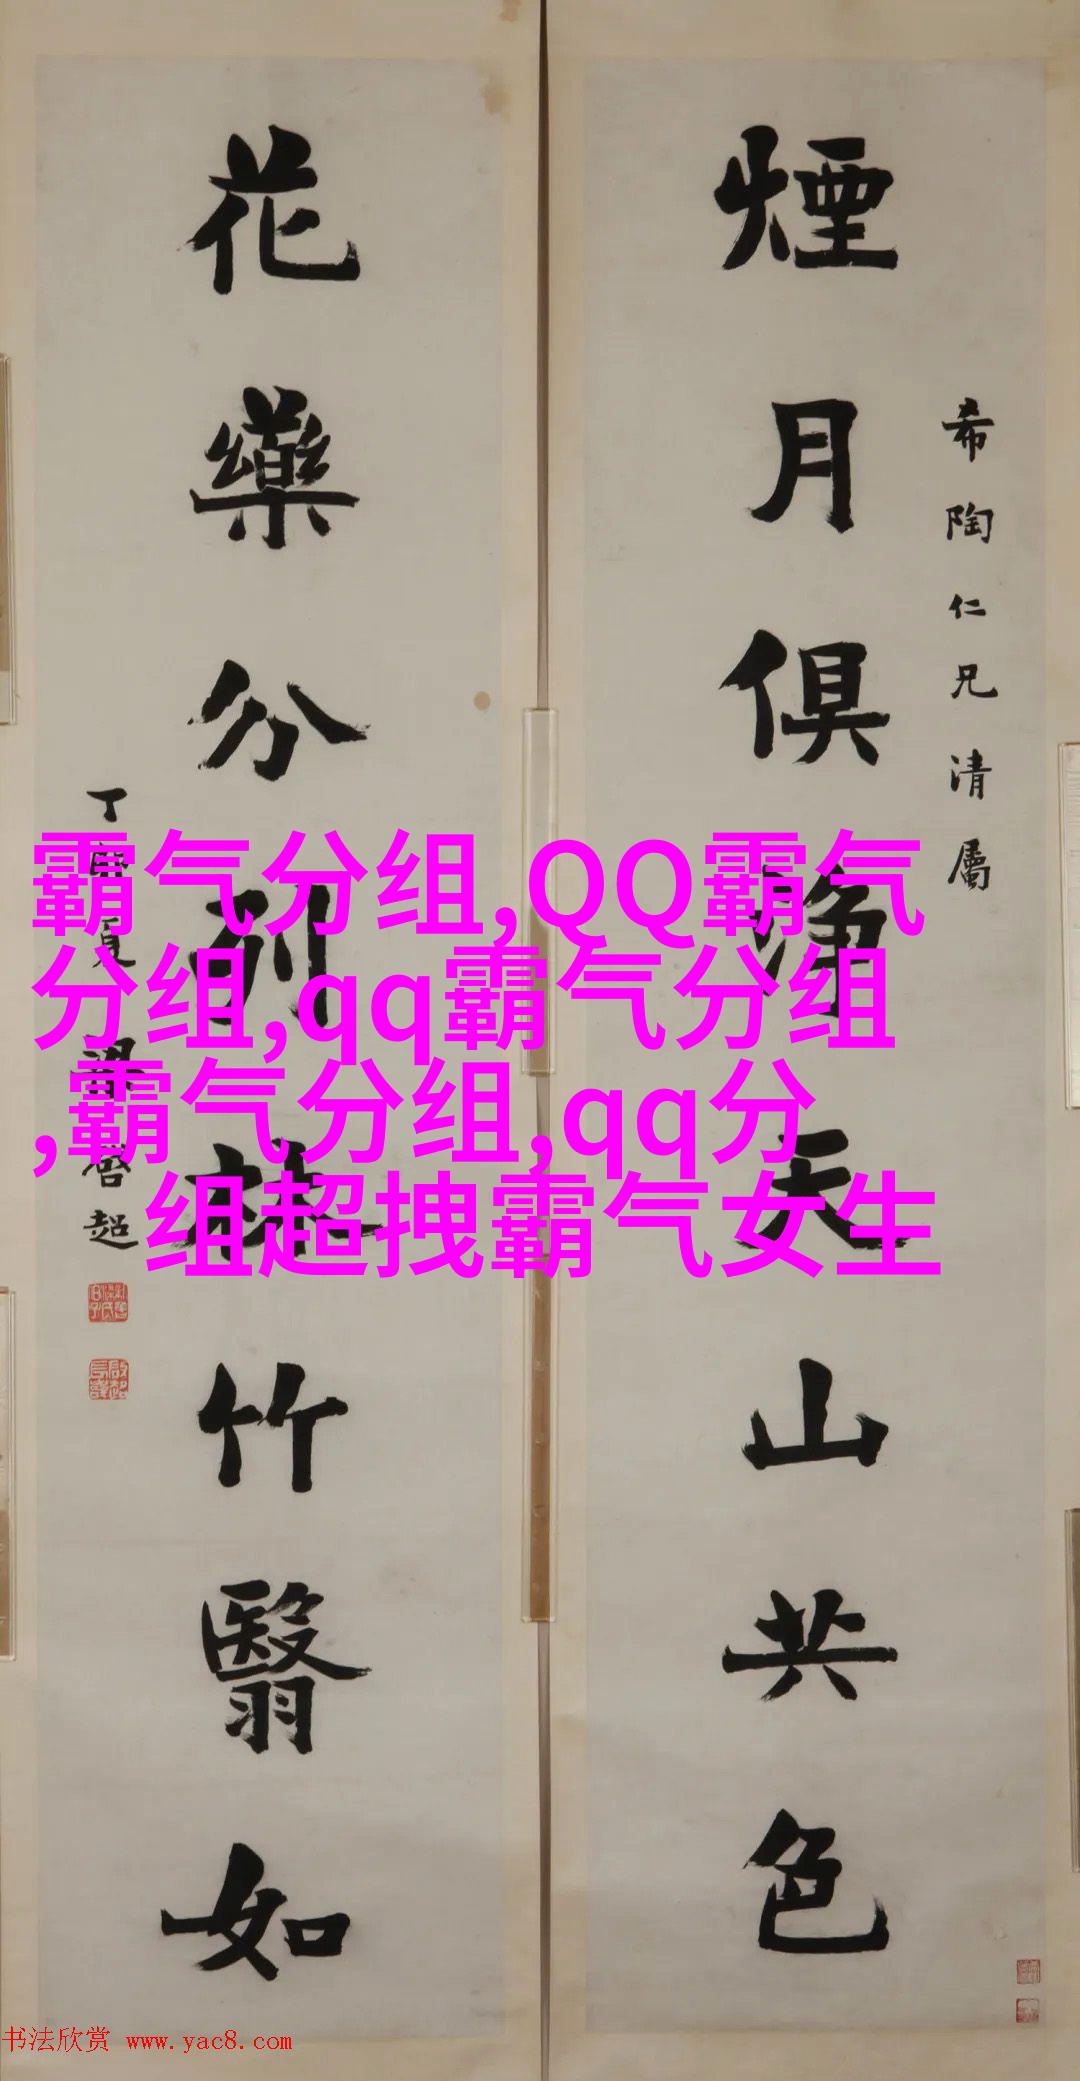 煙月俱淨天山共色
希陶仁兄清屬
花藥分列林竹翳如
丁卯夏梁啓超
霸气分组,QQ霸气
分组,qq霸气分组
,霸气分组,qq分
组超拽霸气女生
书法欣赏 www.yac8.com